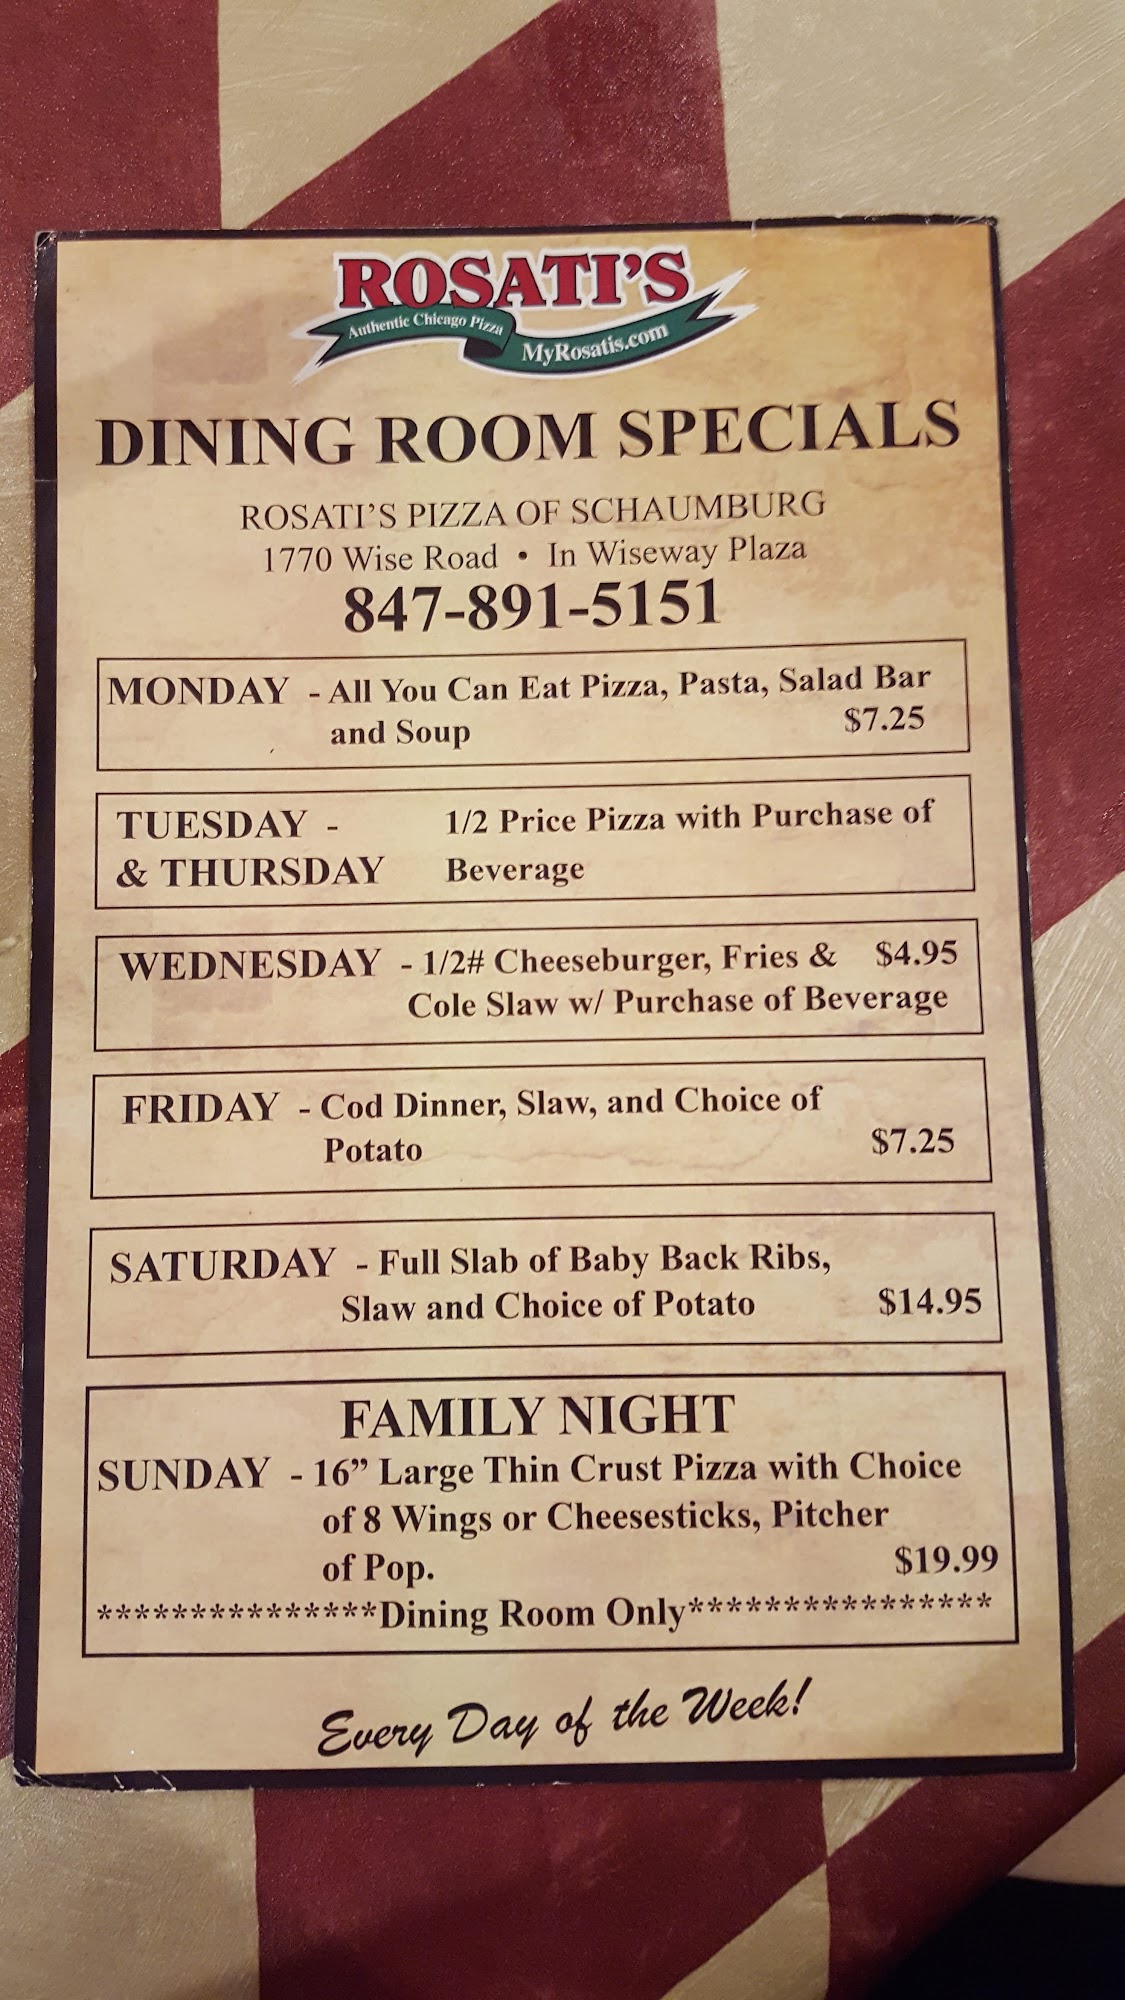 ROSATI'S
Authentic Chicago Pizza
MyRosatis.com
DINING ROOM SPECIALS
ROSATI'S PIZZA OF SCHAUMBURG
1770 Wise Road • In Wiseway Plaza
847-891-5151
MONDAY - All You Can Eat Pizza, Pasta, Salad Bar
and Soup $7.25
TUESDAY - 1/2 Price Pizza with Purchase of
& THURSDAY Beverage
WEDNESDAY - 1/2# Cheeseburger, Fries & $4.95
Cole Slaw w/ Purchase of Beverage
FRIDAY - Cod Dinner, Slaw, and Choice of
Potato $7.25
SATURDAY - Full Slab of Baby Back Ribs,
Slaw and Choice of Potato $14.95
FAMILY NIGHT
SUNDAY - 16” Large Thin Crust Pizza with Choice
of 8 Wings or Cheesesticks, Pitcher
of Pop. $19.99
***************Dining Room Only****************
Every Day of the Week!